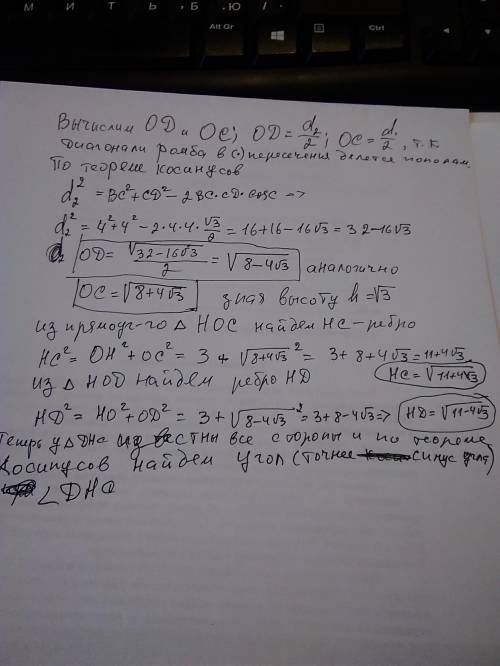 М И Т Ь Б , Ю . /
Alt Gr Ctrl
Вычислим OD и OC; OD = d₂/2; OC = d₁/2, т.к
диагонали ромба в (·) пересечения делятся пополам.
По теореме косинусов
d₂² = BC² + CD² - 2BC·CD·cosC =>
d₂² = 4² + 4² - 2·4·4·√3/2 = 16 + 16 - 16√3 = 32 - 16√3
OD = √(32-16√3)/2 = √(8-4√3) аналогично
OC = √(8+4√3) зная высоту h = √3
из прямоуг-го △ HOC найдем HC - ребро
HC² = OH² + OC² = 3 + √(8+4√3)² = 3 + 8 + 4√3 = 11+4√3
из △ HOD найдем ребро HD HC = √(11+4√3)
HD² = HO² + OD² = 3 + √(8-4√3)² = 3+8-4√3 => HD = √(11-4√3)
Теперь у △DHC известны все стороны и по теореме
Косинусов найдем угол (точнее синус угла)
∠DHC